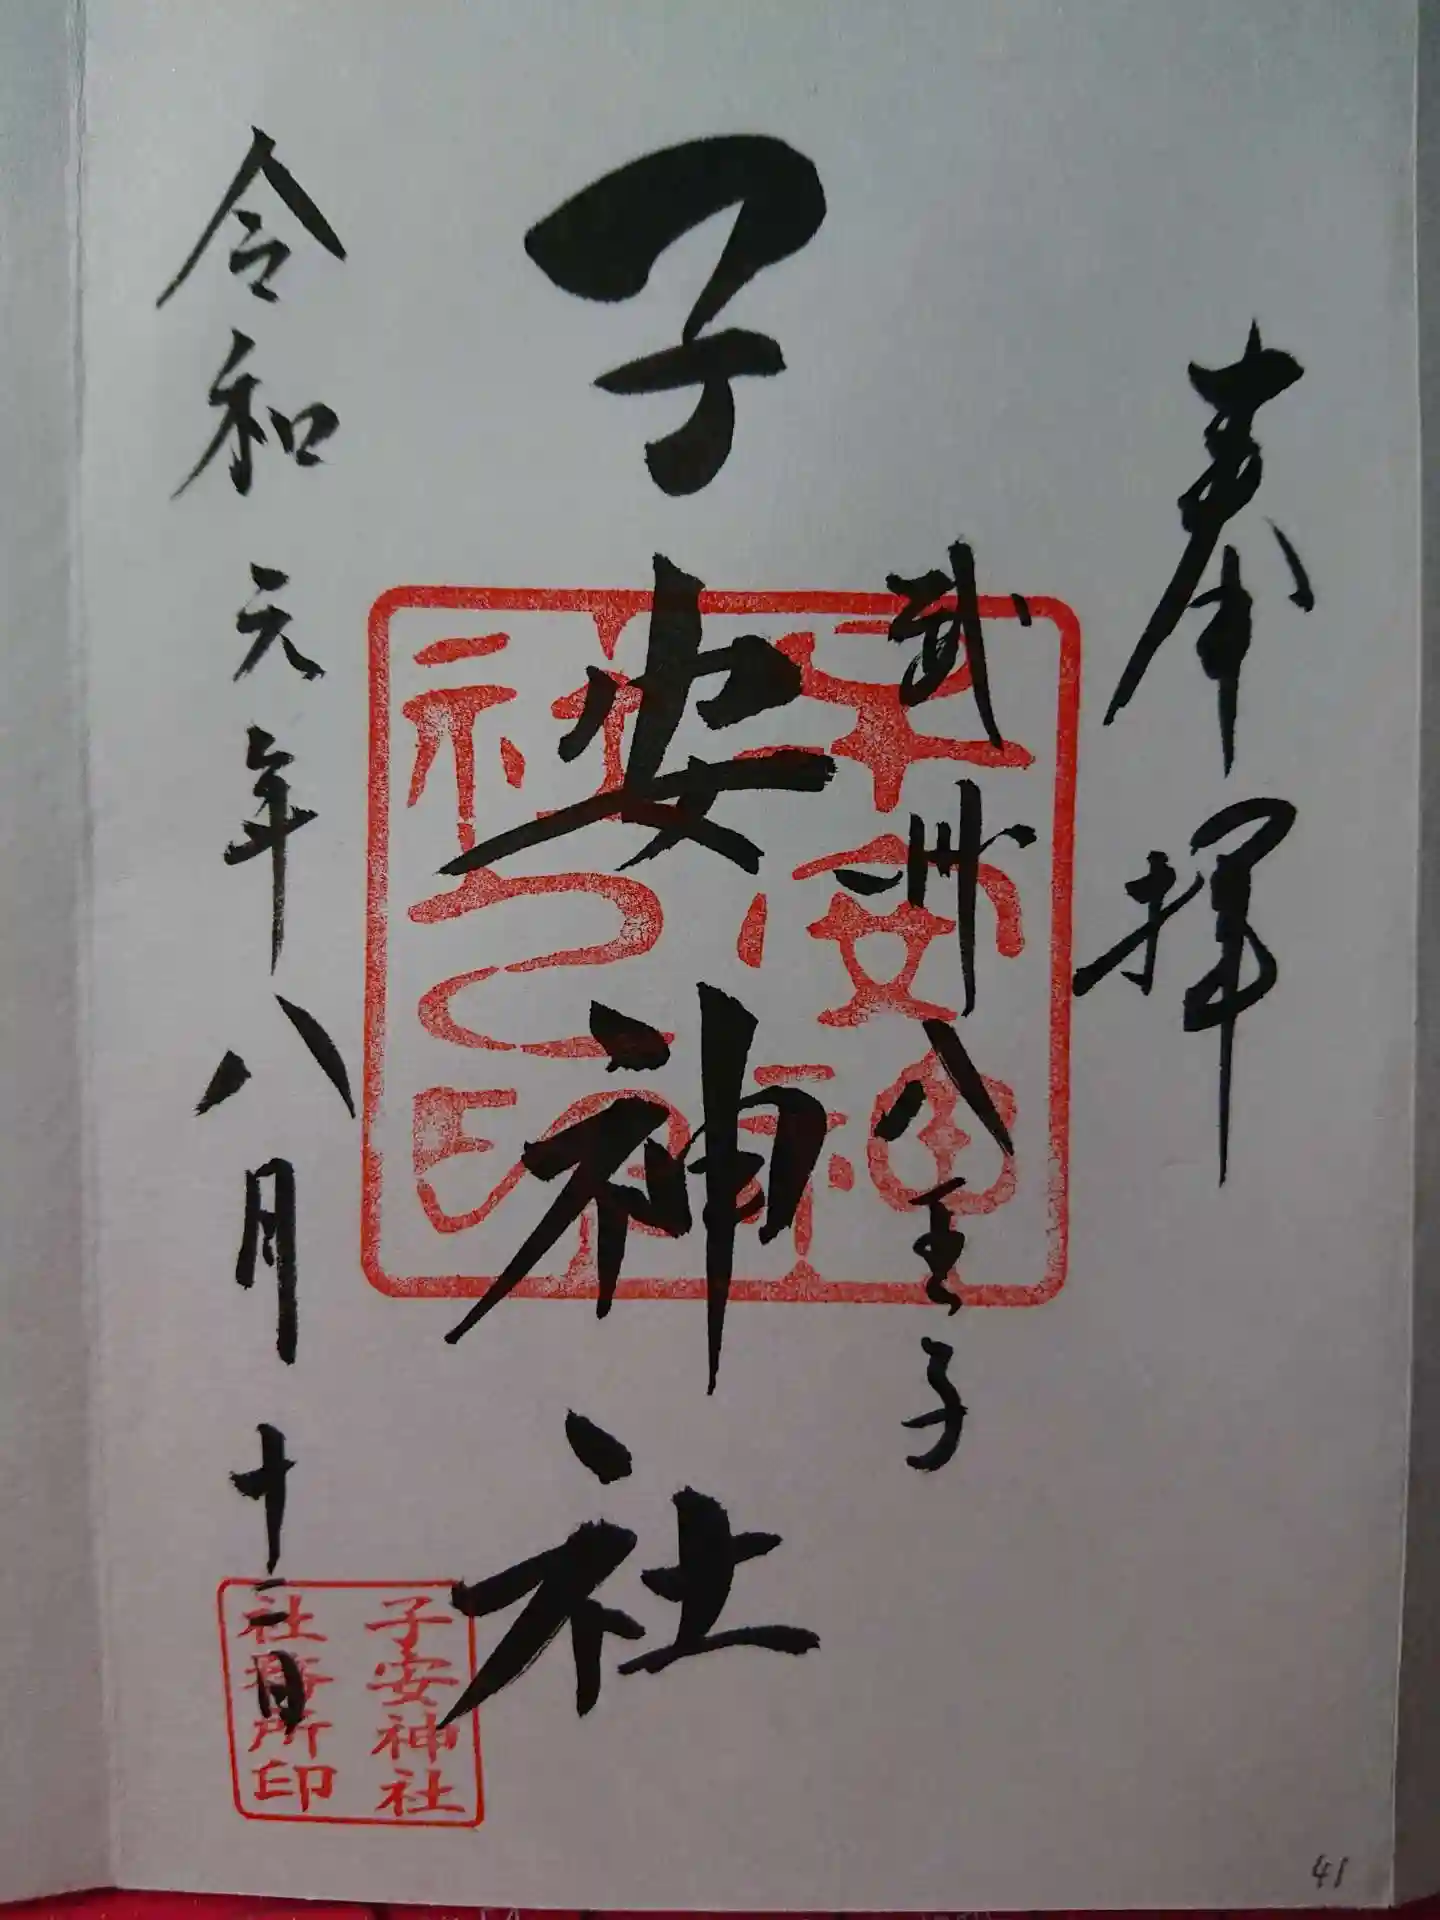 奉拝
武州八王子
子安神社
子安神
社之印
令和元年八月十二日
子安神社
社務所印
41